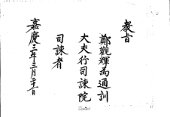 教旨
鄭觀輝為通訓
大夫行司諫院
司諫者
嘉慶二年三月十二日